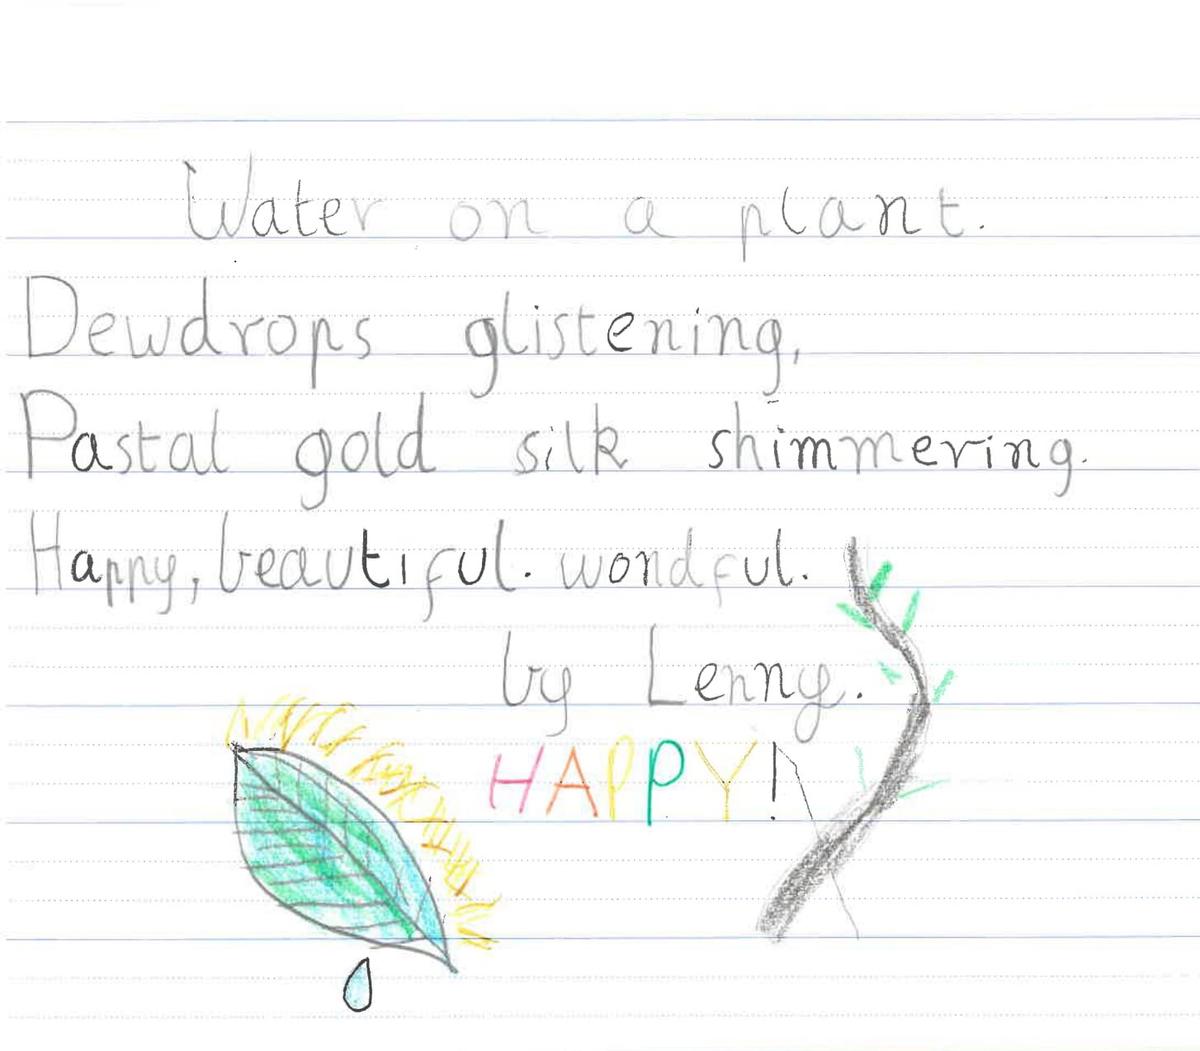 Water on a plant.
Dewdrops glistening,
Pastal gold silk shimmering.
Happy, beautiful. wondful.
by Lenny.
HAPPY!